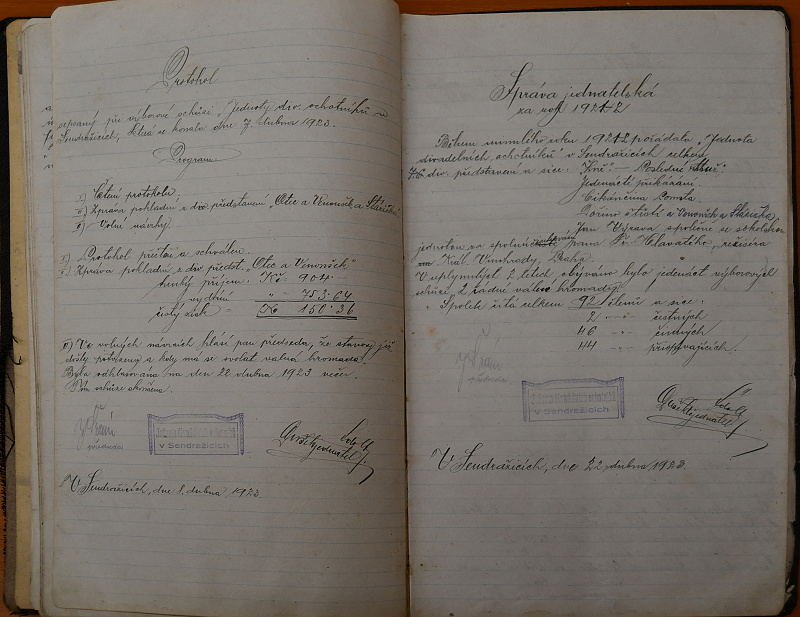 Protokol
sepsaný při výborové schůzi „Jednoty div. ochotníků v
Sendražicích, která se konala dne 7. dubna 1923.
Program
I.) Čtení protokolu
II.) Zpráva pokladní z div. představení „Otec a Venoušek a Stáriček
III.) Volní návrhy.
I.) Protokol přečten a schválen.
II.) Zpráva pokladní z div. předst. „Otec a Venoušek"
hrubý příjem: Kč 904·-
vydání „ 753·64
čistý zisk Kč 150·36
III.) Ve volných návrzích hlásí pan předseda, že stanovy již
došly potvrzeny a kdy má se svolat valná hromada.
Byla odhlasována na den 22. dubna 1923 večer.
Tím schůze skončena.
předseda
v Sendražicích
jednatel
V Sendražicích, dne 1. dubna 1923.
Správa jednatelská
za rok 1921-2
Během minulého roku 1921-2 pořádala „Jednota
divadelních ochotníků" v Sendražicích celkem
div. představení a sice: Poslední muž."
Jedenácté přikázání.
Cikánčina pomsta
a Venoušek a Stáriček
Jan Výrava společně se sokolskou
jednotou za spolu pana Fr. Hlavatého, režiséra
Král. Vinohrady, Praha.
V uplynulých 2 letech, odbýváno bylo jedenáct výborových
schůzí, 2 řádné valné hromady.
Spolek čítá celkem 92 členů a sice:
2 -„- čestných
46 -„- činných
44 -„- přispívajících.
předseda
v Sendražicích
jednatel
V Sendražicích, dne 22. dubna 1923.